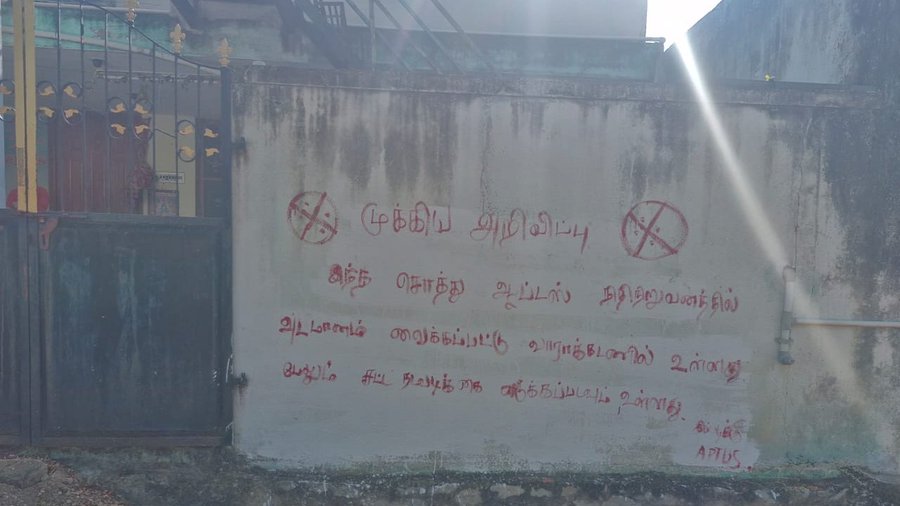 முக்கிய அறிவிப்பு
இந்த சொத்து ஆப்டஸ் நிதிநிறுவனத்தில்
அடமானம் வைக்கப்பட்டு வாராக்கடனில் உள்ளது
மேலும் சட்ட நடவடிக்கை எடுக்கப்படவும் உள்ளது.
APTUS